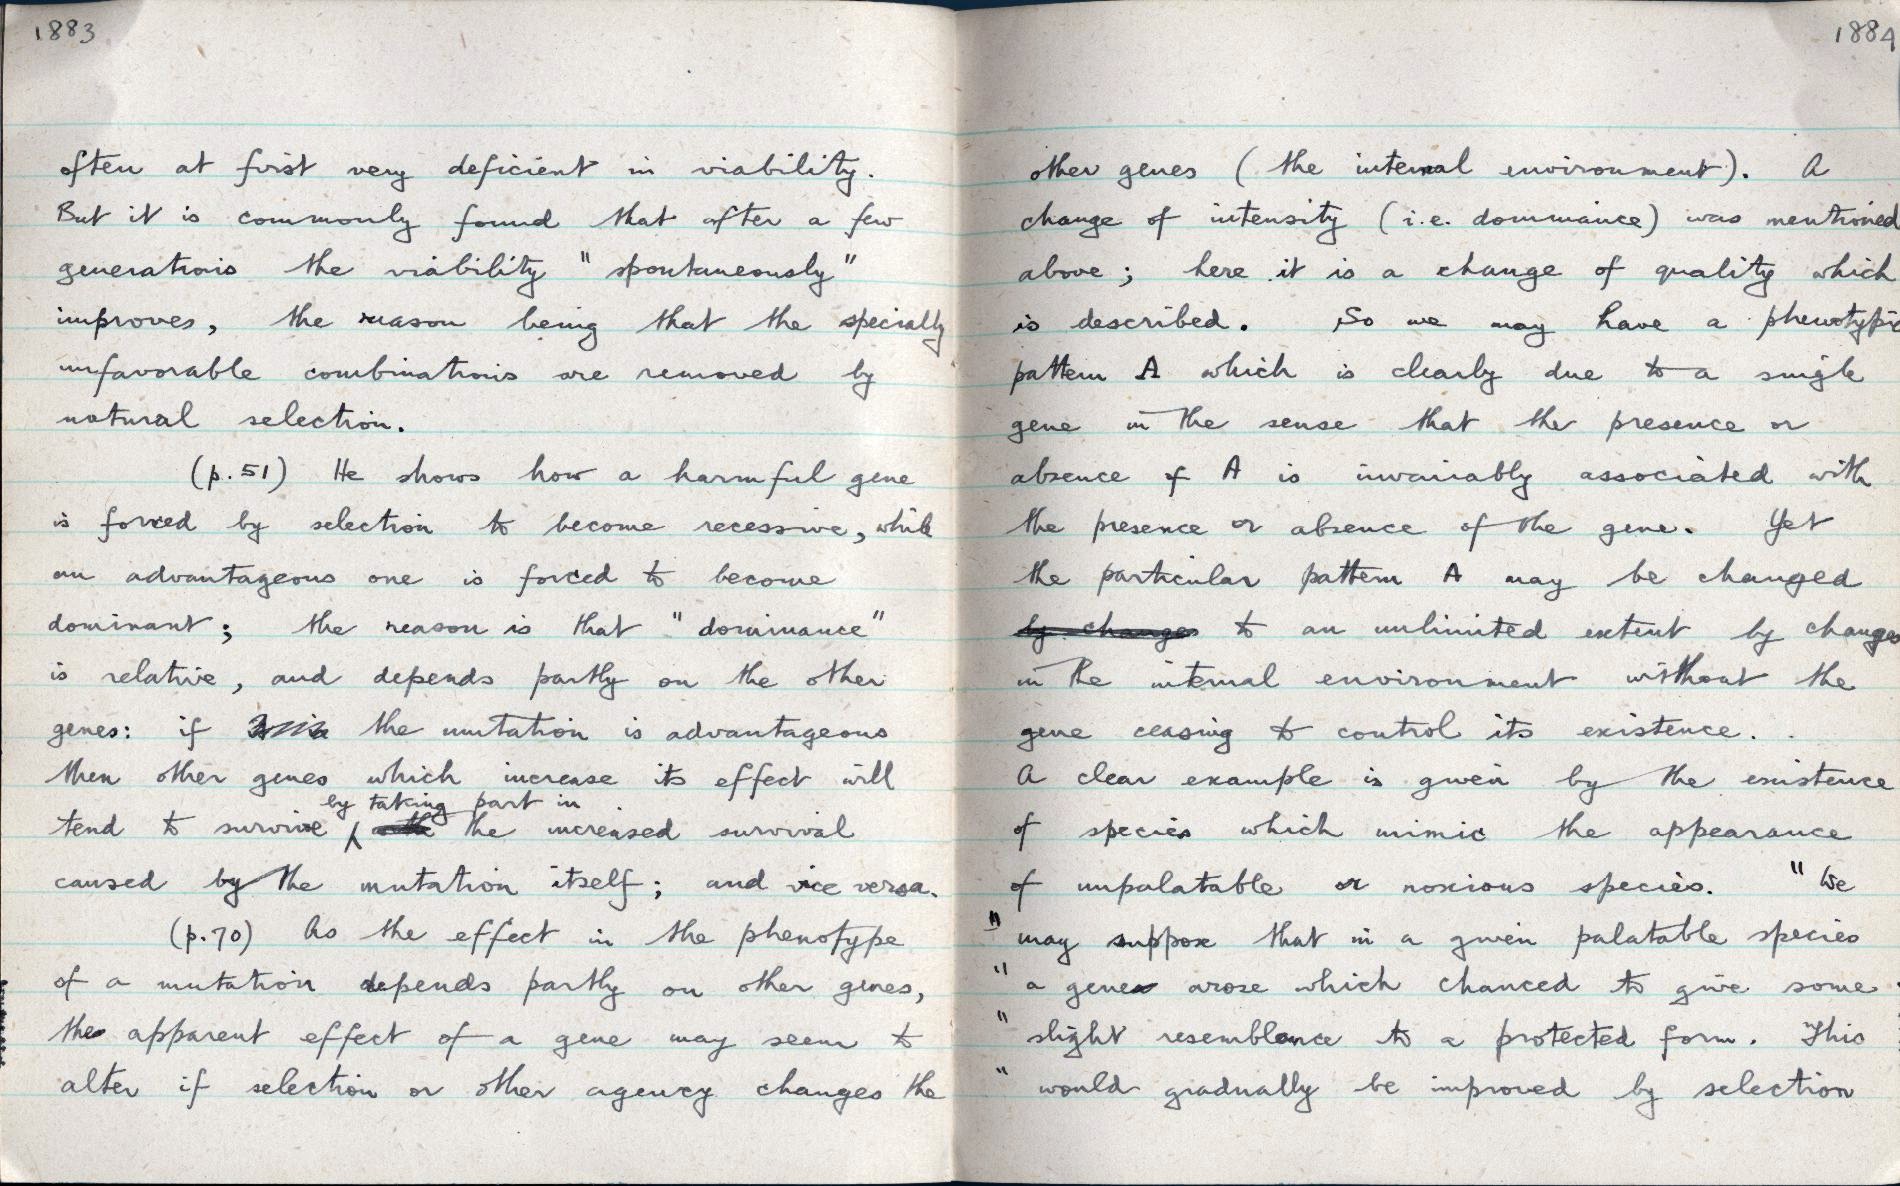 1883
often at first very deficient in viability.
But it is commonly found that after a few
generations the viability "spontaneously"
improves, the reason being that the specially
unfavorable combinations are removed by
natural selection.
(p.51) He shows how a harmful gene
is forced by selection to become recessive, while
an advantageous one is forced to become
dominant; the reason is that "dominance"
is relative, and depends partly on the other
genes: if the mutation is advantageous
then other genes which increase its effect will
by taking part in
tend to survive the increased survival
caused by the mutation itself; and vice versa.
(p.70) As the effect in the phenotype
of a mutation depends partly on other genes,
the apparent effect of a gene may seem to
alter if selection or other agency changes the
1884
other genes (the internal environment). A
change of intensity (i.e. dominance) was mentioned
above; here it is a change of quality which
is described. So we may have a phenotypic
pattern A which is clearly due to a single
gene in the sense that the presence or
absence of A is invariably associated with
the presence or absence of the gene. Yet
the particular pattern A may be changed
by changes to an unlimited extent by changes
in the internal environment without the
gene ceasing to control its existence.
A clear example is given by the existence
of species which mimic the appearance
of unpalatable or noxious species. "We
"may suppose that in a given palatable species
"a gene arose which chanced to give some
"slight resemblance to a protected form. This
"would gradually be improved by selection